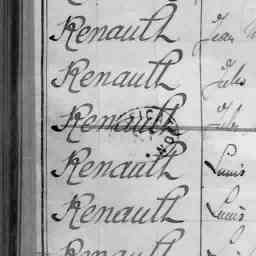 Renault Jean
Renault Jules
Renault Jules
Renault Louis
Renault Louis
Renault